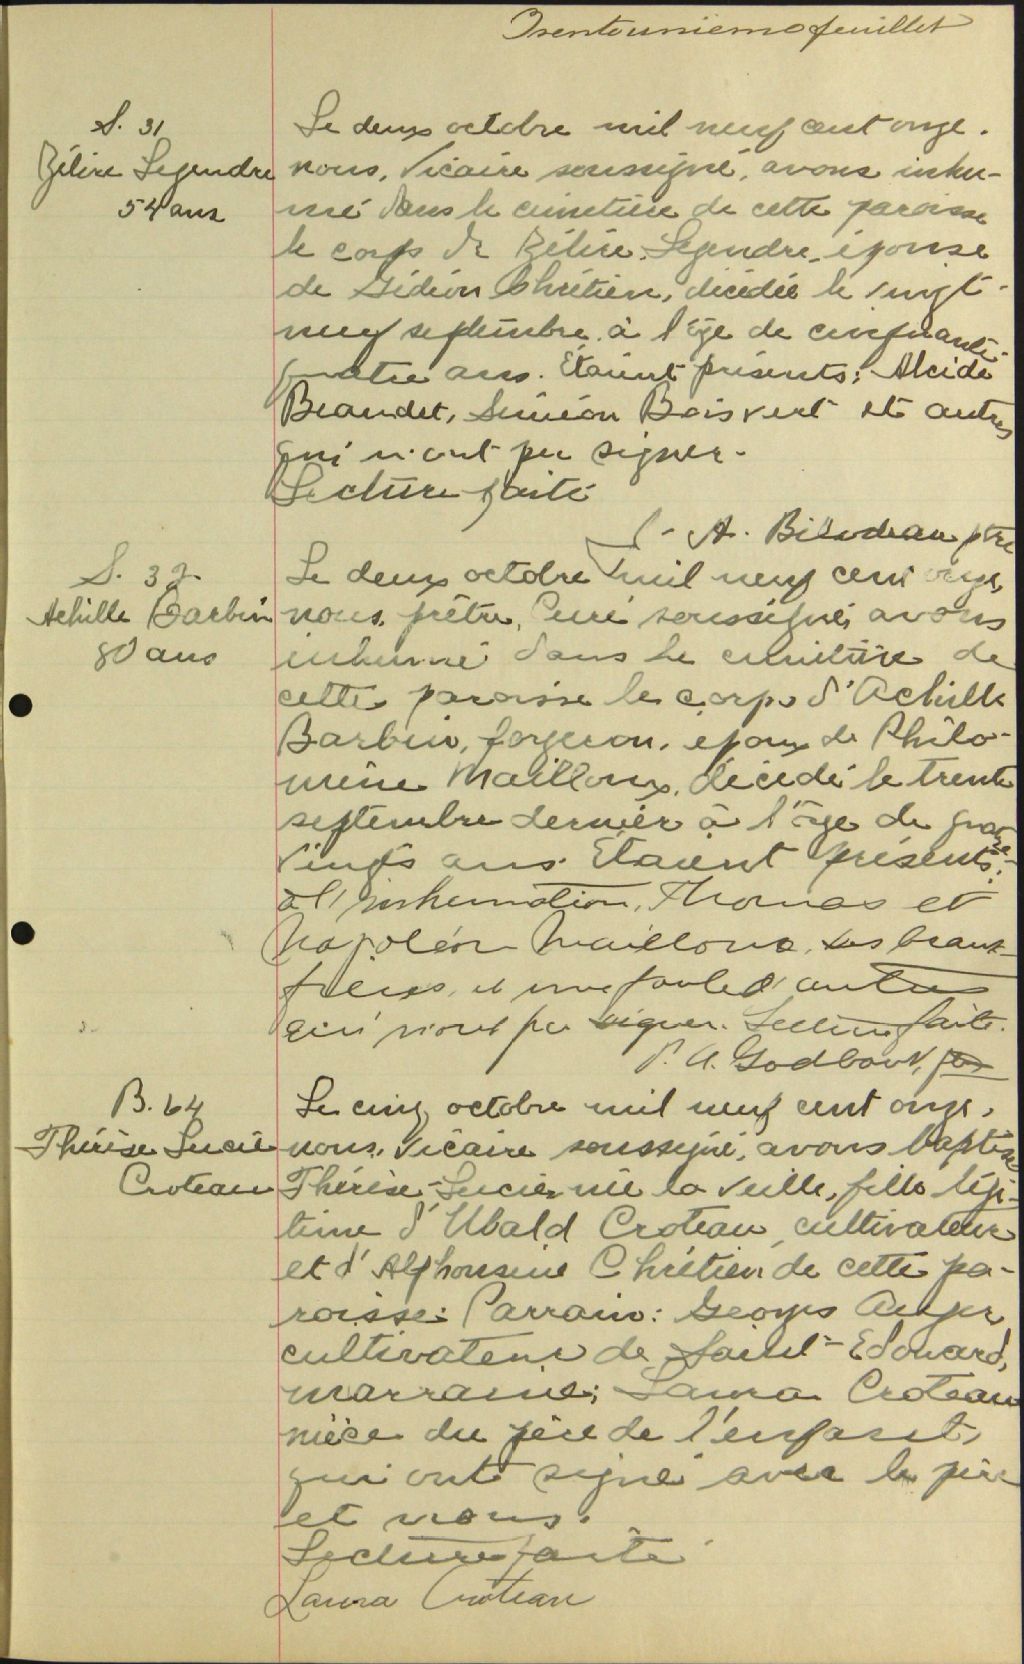 Trentunième feuillet
S. 31
Zélire Legendre
54 ans
Le deux octobre mil neuf cent onze,
nous, Vicaire soussigné, avons inhu-
mé dans le cimetière de cette paroisse
le corps de Zélire Legendre, épouse
de Gédéon Chrétien, décédée le vingt-
neuf septembre à l'âge de cinquante-
quatre ans. Étaient présents: Alcide
Beaudet, Siméon Boisvert et autres
qui n'ont pu signer.
Lecture faite
J. A. Bilodeau ptre
S. 32
Achille Barbin
80 ans
Le deux octobre mil neuf cent onze,
nous, prêtre, Curé soussigné, avons
inhumé dans le cimetière de
cette paroisse le corps d'Achille
Barbin, forgeron, époux de Philo-
mène Mailloux, décédé le trente
septembre dernier à l'âge de quatre-
vingts ans. Étaient présents
à l'inhumation, Thomas et
Napoléon Mailloux, ses beaux-
frères, et une foule d'autres
qui n'ont pu signer. Lecture faite.
P. A. Godbout, ptre
B. 64
Thérèse Lucie
Croteau
Le cinq octobre mil neuf cent onze,
nous, Vicaire soussigné, avons baptisé
Thérèse-Lucie, née la veille, fille légi-
time d'Ubald Croteau, cultivateur
et d'Alphonsine Chrétien de cette pa-
roisse: Parrain: Georges Auger
cultivateur de Saint-Edouard,
marraine; Laura Croteau
nièce du père de l'enfant,
qui ont signé avec le père
et nous.
Lecture faite
Laura Croteau